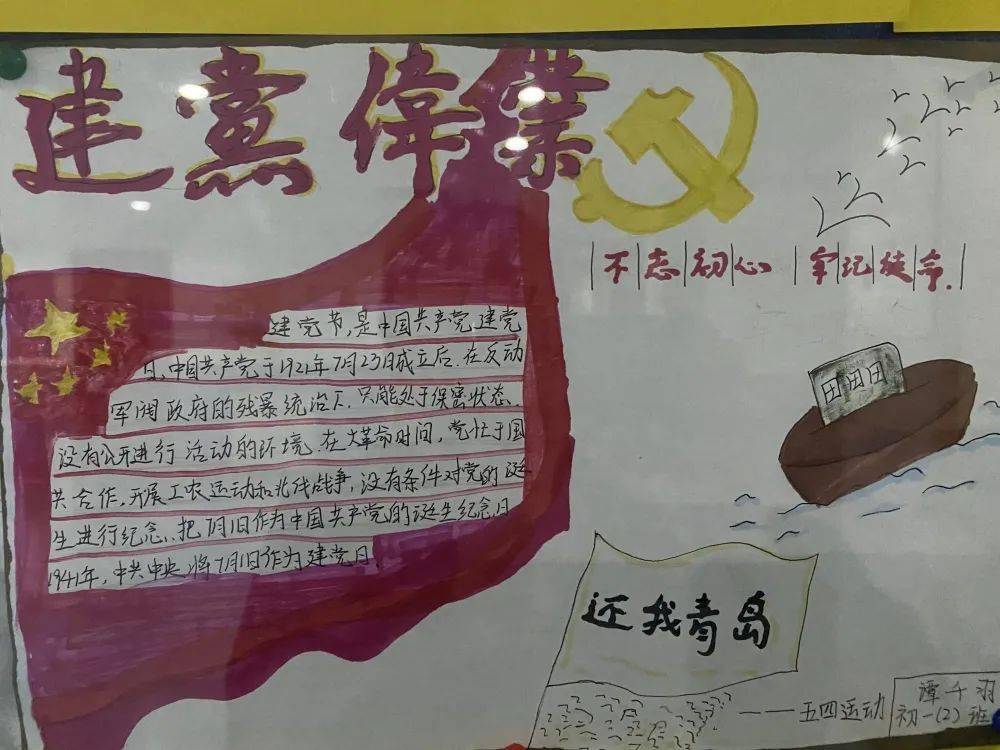 建黨偉業
不忘初心 牢记使命.
建党节,是中国共产党建党
日,中国共产党于1921年7月23日成立后.在反动
军阀政府的残暴统治下.只能处于保密状态、
没有公开进行活动的环境.在大革命时间,党忙于国
共合作,开展工农运动和北伐战争,没有条件对党的诞
生进行纪念..把7月1日作为中国共产党的诞生纪念日
1941年,中共中央将7月1日作为建党日.
还我青岛
——五四运动
谭千羽
初一(2)班